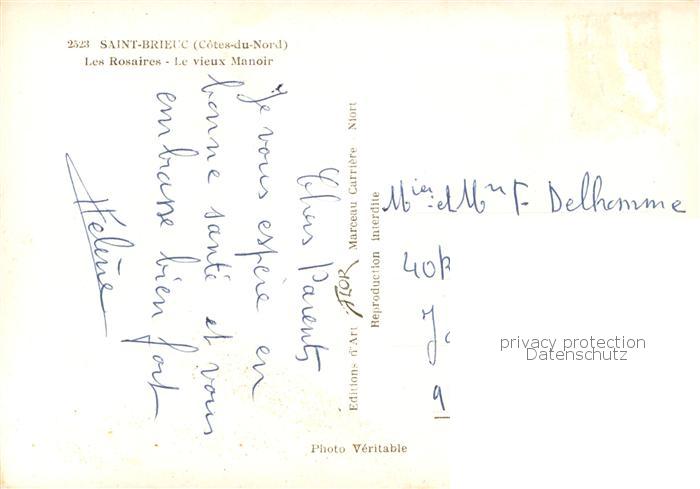 2523 SAINT-BRIEUC (Côtes-du-Nord)
Les Rosaires - Le vieux Manoir
Chers Parents
Je vous espère en
bonne santé et vous
embrasse bien fort
Hélène
Editions d'Art JLOR Marceau Carrière - Niort
Reproduction interdite
et F Delhomme
40
9
privacy protection
Datenschutz
Photo Véritable